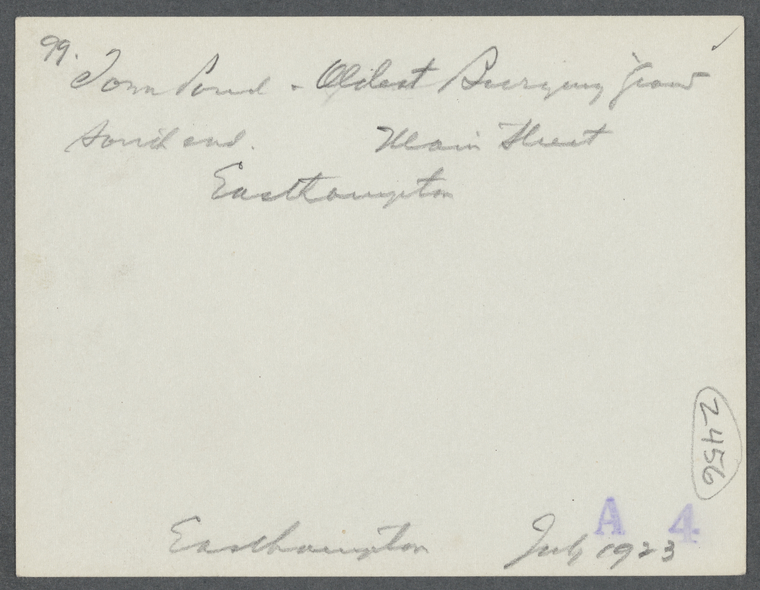 99.
Town Pond - Oldest Burying Grou
South end. Main Street
Easthampton
2456
A 4
Easthampton July 1923